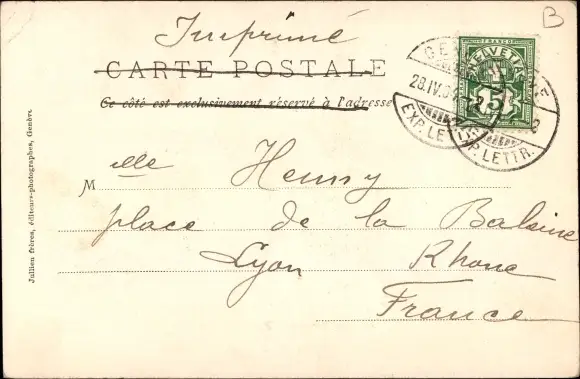 B
Imprimé
CARTE POSTALE
Ce côté est exclusivement réservé à l'adresse
FRANCO
HELVETIA
5
28.IV.04
EXP. LETTR.
EXP. LETTR.
Mlle Henry
place de la Balsine
Lyon Rhone
France
Jullien frères, éditeurs-photographes, Genève